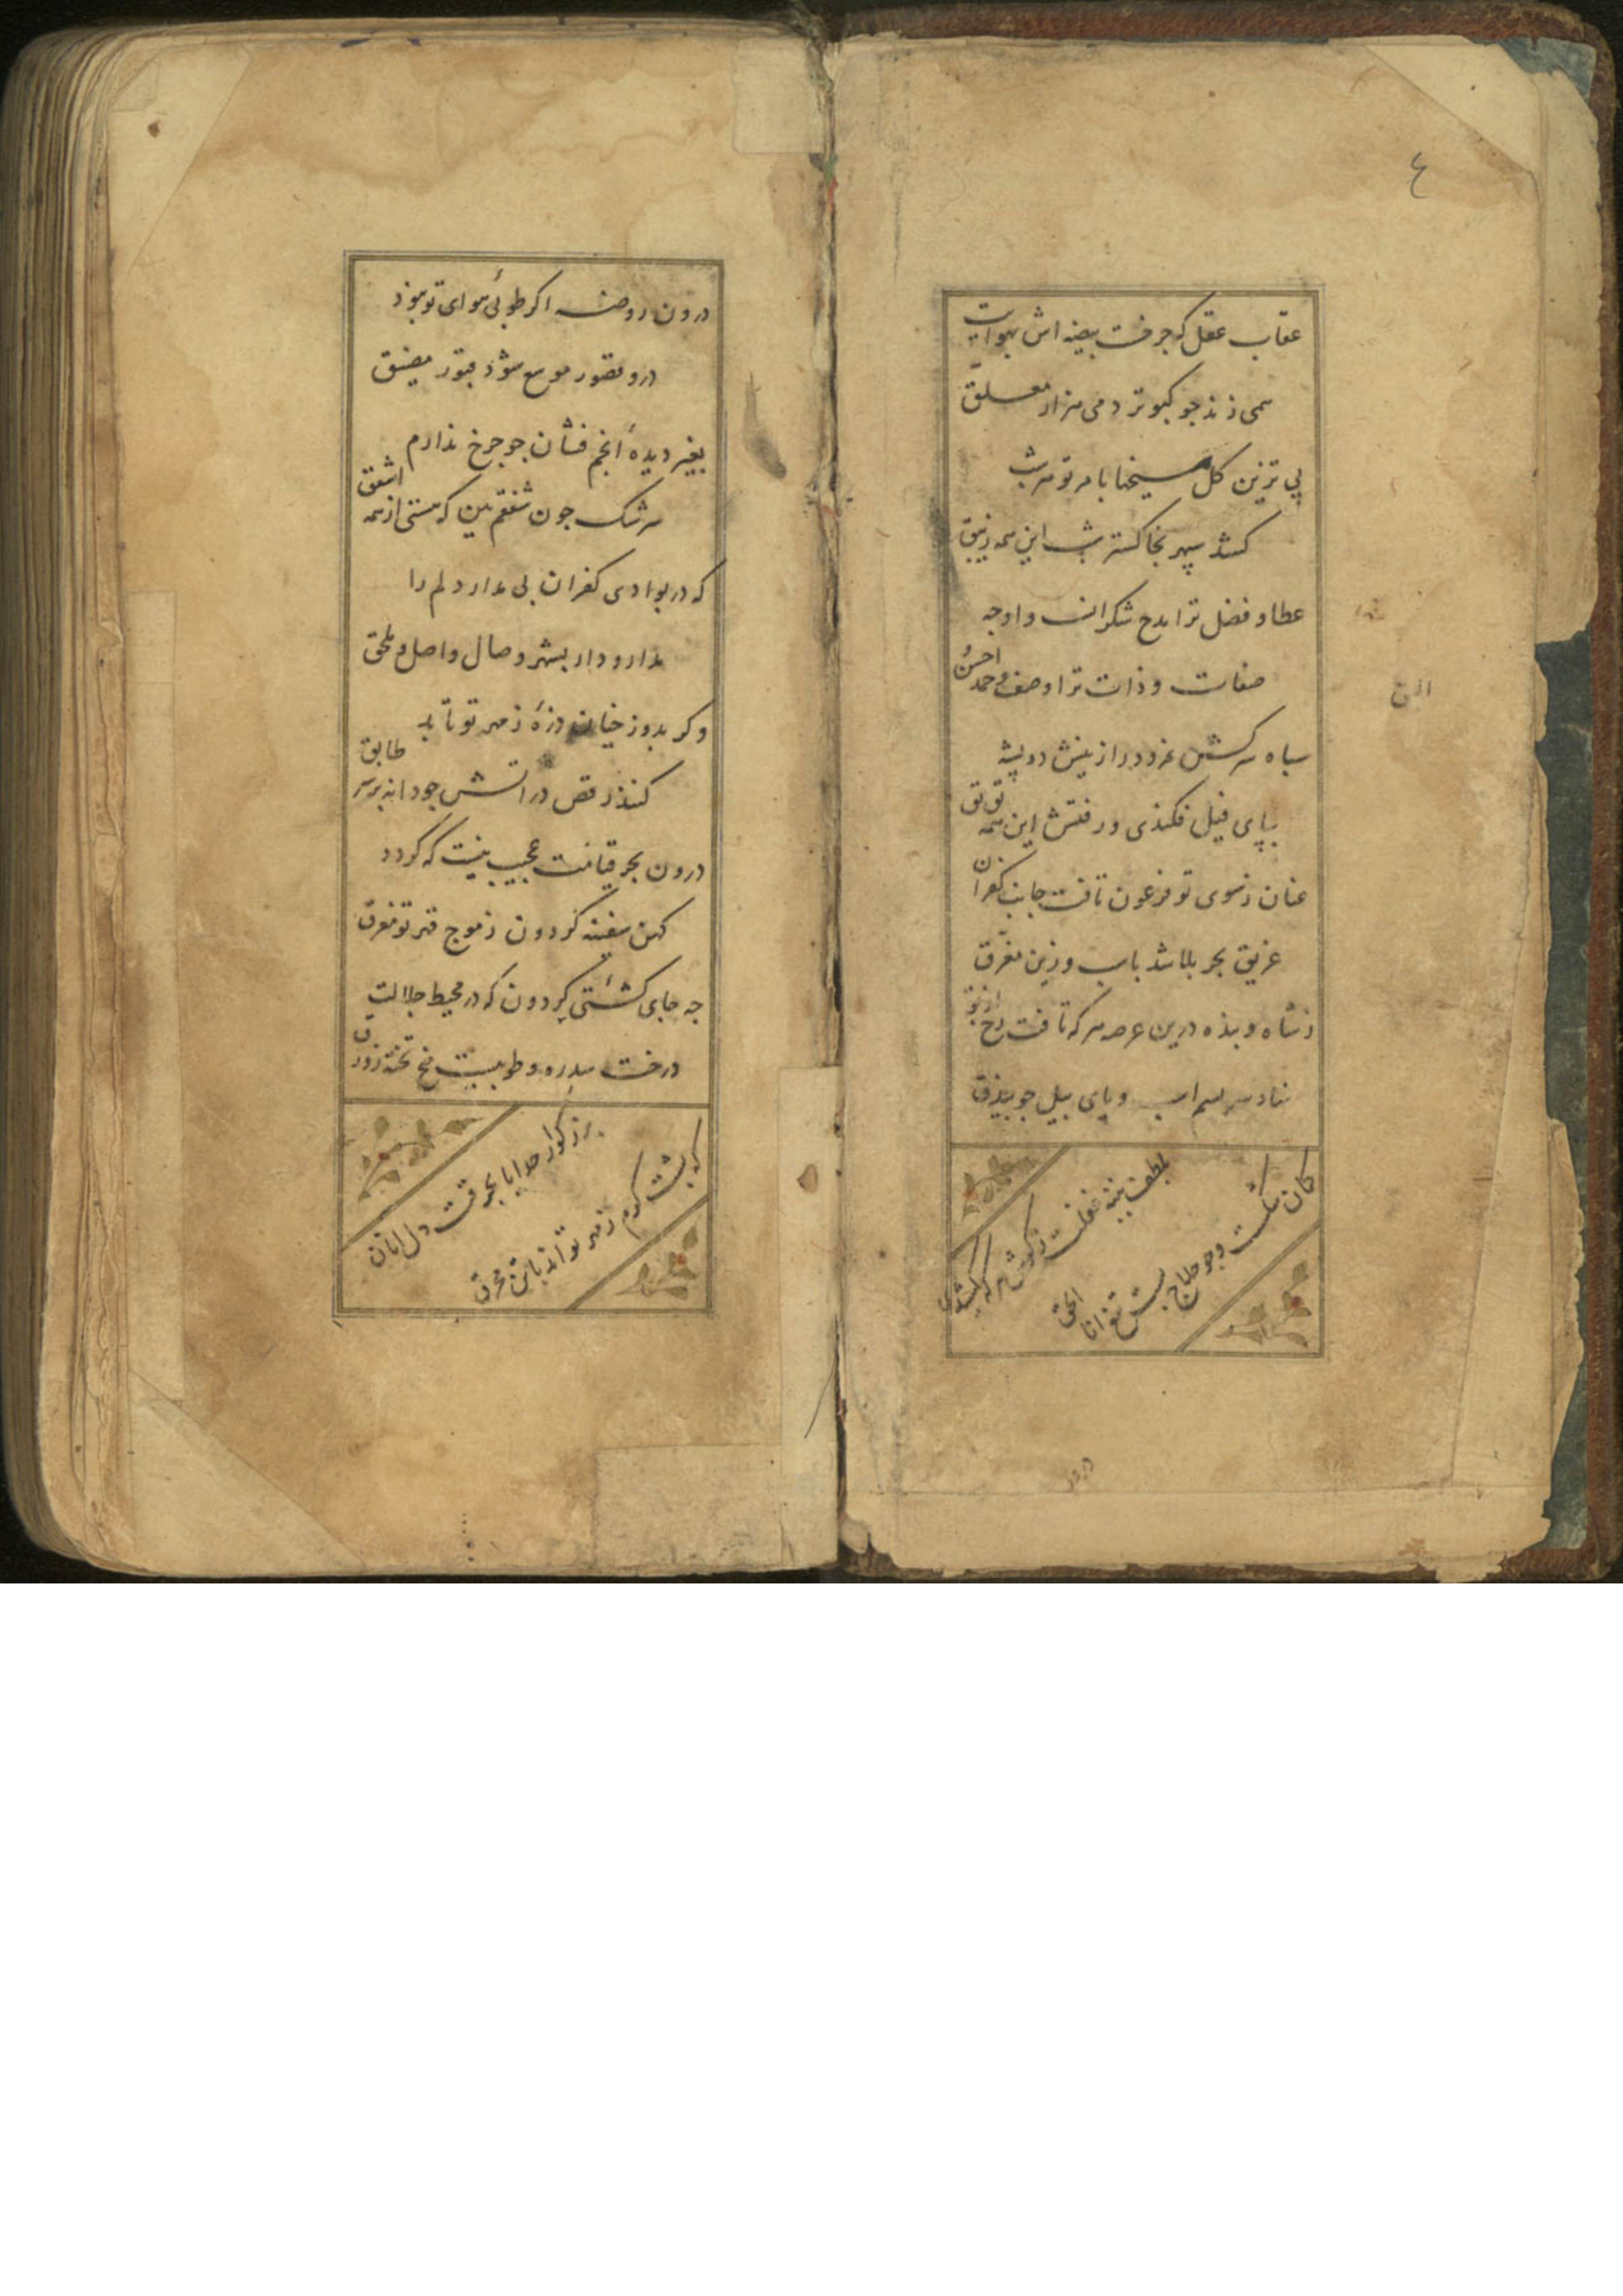 ٤
عقاب عقل که جرخت بیضه اش بهوایت
همی زند جو کبوتر دمی هزار معلق
پی تزین کل مسیخنا بامر تو هر شب
کشد سپهر بخاکستر شب این همه زنبق
عطا و فضل ترا مدح شکرانت و اوجه
صفات و ذات ترا وصف و حمد احسن
الیق
سباه سرکش نمرود را ز نیش دو پشه
بپای فیل فکندی و رفتش این همه توق تق
عنان ز سوی تو فرعون تافت جانب کفران
غریق بحر بلا شد باسب و زین مغرق
ز شاه و بنده درین عرصه هر که تافت رخ از تو
نهاد سر بسم اسب و پای بیل جو بیذق
بلطف پنبه غفلت ز کوش هر که کشیدی
کمان شکست و جو حلاج بست تیغ انا الحق
درون
درون روضه اکر طوبئ هوای تو نبوذ
درو قصور موسع شوذ قبور مضیق
بغیر دیدۀ انجم فشان جو جرخ ندارم
سرشک جون شفقم بین که هستی از همه اشفق
که در بوادی کفران بی مدار دلم را
مدار و دار بشهر وصال واصل و ملحق
وکر بدوزخیان ذرۀ ز مهر تو تابد
کنند رقص در آتش جو دانه بر سر طابق
درون بحر قیامت عجیب نیست که کردد
کهن سفینه کردون ز موج قهر تو مغرق
جه جای کشتئ کردون که در محیط جلالت
درخت سدره و طوبیست نخ تخته زورق
بزرکوار خدایا بحرقت دل انان
که بشت کرم ز مهر تو اند با تن محرق